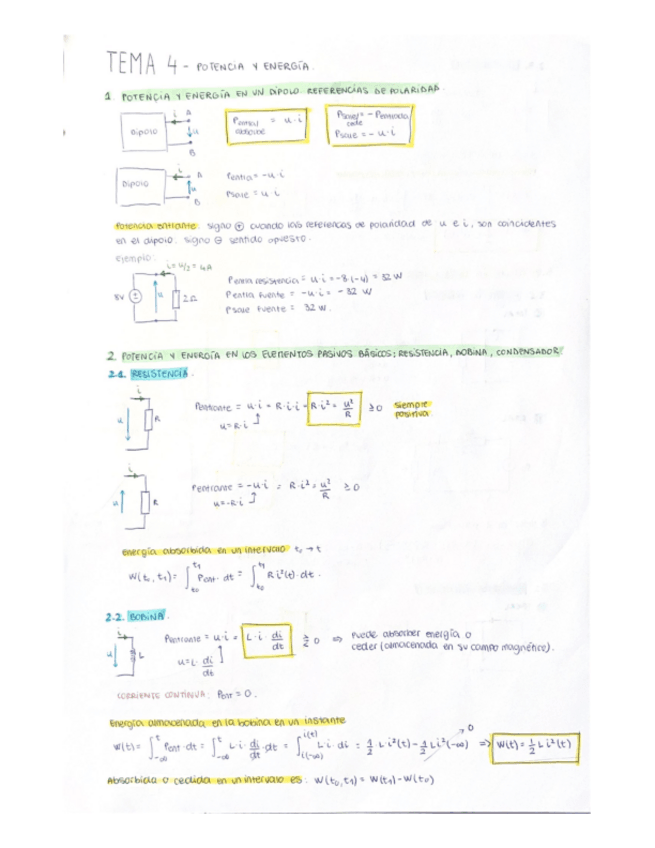 TEMA 4 - POTENCIA Y ENERGÍA.
1. POTENCIA Y ENERGÍA EN UN DIPOLO. REFERENCIAS DE POLARIDAD.
Dipolo i A u B
= u·i
Psale = -u·i
Dipolo i A u B
Pentra = -u·i
Psale = u·i
Potencia entrante: signo ⊕ cuando las referencias de polaridad de u e i, son coincidentes
en el dipolo. signo ⊖ sentido opuesto.
ejemplo:
i = u/2 = 4A
8V u 2Ω
Pentra resistencia = u·i = -8·(-4) = 32 W
Pentra fuente = -u·i = -32 W
Psale fuente = 32 W.
2. POTENCIA Y ENERGÍA EN LOS ELEMENTOS PASIVOS BÁSICOS; RESISTENCIA, BOBINA, CONDENSADOR
2.1. RESISTENCIA.
i u R
Pentrante = u·i = R·i·i = R·i² = u²/R ≥ 0 siempre positiva
u = R·i
i u R
Pentrante = -u·i = R·i² = u²/R ≥ 0
u = -R·i
Energía absorbida en un intervalo
W(t₀, t₁) = ∫ Pent· dt = ∫ R i²(t)·dt.
2.2. BOBINA.
i u L
Pentrante = u·i = L·i·di/dt ≷ 0 ⇒ Puede absorber energía o
ceder (almacenada en su campo magnético).
u = L·di/dt
CORRIENTE CONTÍNUA: Pent = 0.
Energía almacenada en la bobina en un instante
W(t) = ∫ Pent·dt = ∫ L·i·di/dt·dt = ∫ L·i·di = 1/2 L i²(t) - 1/2 L i²(-∞) ⇒ W(t) = 1/2 L i²(t)
0
Absorbida o cedida en un intervalo es: W(t₀,t₁) = W(t₁) - W(t₀)